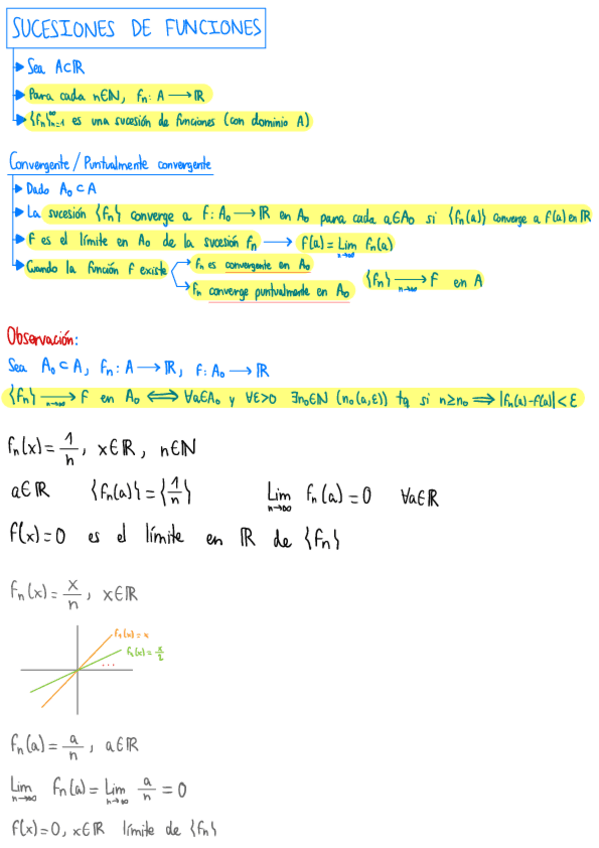 SUCESIONES DE FUNCIONES
Sea A⊂ℝ
Para cada n∈ℕ, fn: A → ℝ
{fn}∞n=1 es una sucesión de funciones (con dominio A)
Convergente / Puntualmente convergente
Dado A₀ ⊂ A
La sucesión {fn} converge a f: A₀ → ℝ en A₀ para cada a∈A₀ si {fn(a)} converge a f(a) en ℝ
f es el límite en A₀ de la sucesión fn → f(a) = Lim n→∞ fn(a)
Cuando la función f existe
fn es convergente en A₀
fn converge puntualmente en A₀
{fn} → n→∞ f en A
Observación:
Sea A₀ ⊂ A, fn: A → ℝ, f: A₀ → ℝ
{fn} → n→∞ f en A₀ ⟺ ∀a∈A₀ y ∀ε>0 ∃n₀∈ℕ (n₀(a,ε)) tq si n≥n₀ ⟹ |fn(a)-f(a)| < ε
fn(x) = 1/n, x∈ℝ, n∈ℕ
a∈ℝ {fn(a)} = {1/n} Lim n→∞ fn(a) = 0 ∀a∈ℝ
f(x) = 0 es el límite en ℝ de {fn}
fn(x) = x/n, x∈ℝ
f₁(x) = x
f₂(x) = x/2
...
fn(a) = a/n, a∈ℝ
Lim n→∞ fn(a) = Lim n→∞ a/n = 0
f(x) = 0, x∈ℝ límite de {fn}